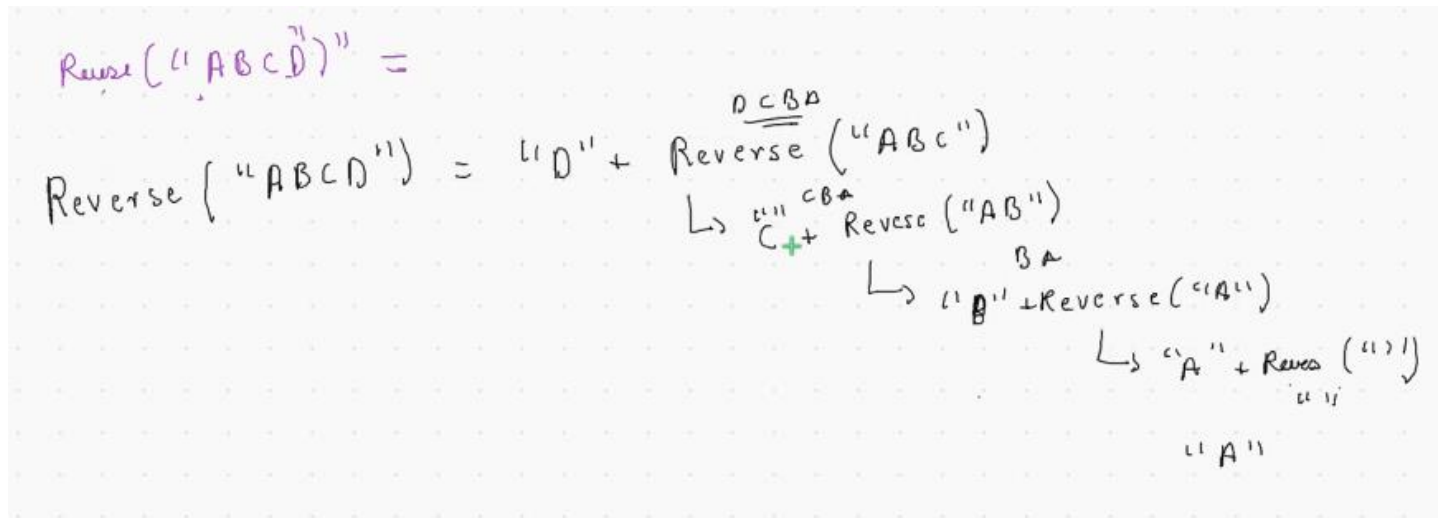 Reuse("ABCD")" =
DCBA
Reverse ("ABCD") = "D" + Reverse ("ABC")
CBA
"C" + Revese ("AB")
BA
"B" + Reverse ("A")
"A" + Reves ("")
""
"A"